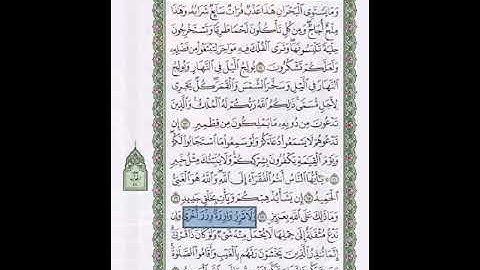 وَمَا يَسْتَوِى ٱلْبَحْرَانِ هَٰذَا عَذْبٌ فُرَاتٌ سَآئِغٌ شَرَابُهُۥ وَهَٰذَا
مِلْحٌ أُجَاجٌ وَمِن كُلٍّ تَأْكُلُونَ لَحْمًا طَرِيًّا وَتَسْتَخْرِجُونَ
حِلْيَةً تَلْبَسُونَهَا وَتَرَى ٱلْفُلْكَ فِيهِ مَوَاخِرَ لِتَبْتَغُوا۟ مِن فَضْلِهِۦ
وَلَعَلَّكُمْ تَشْكُرُونَ يُولِجُ ٱلَّيْلَ فِى ٱلنَّهَارِ وَيُولِجُ
ٱلنَّهَارَ فِى ٱلَّيْلِ وَسَخَّرَ ٱلشَّمْسَ وَٱلْقَمَرَ كُلٌّ يَجْرِى
لِأَجَلٍ مُّسَمًّى ذَٰلِكُمُ ٱللَّهُ رَبُّكُمْ لَهُ ٱلْمُلْكُ وَٱلَّذِينَ
تَدْعُونَ مِن دُونِهِۦ مَا يَمْلِكُونَ مِن قِطْمِيرٍ إِن
تَدْعُوهُمْ لَا يَسْمَعُوا۟ دُعَآءَكُمْ وَلَوْ سَمِعُوا۟ مَا ٱسْتَجَابُوا۟ لَكُمْ
وَيَوْمَ ٱلْقِيَٰمَةِ يَكْفُرُونَ بِشِرْكِكُمْ وَلَا يُنَبِّئُكَ مِثْلُ خَبِيرٍ
يَٰٓأَيُّهَا ٱلنَّاسُ أَنتُمُ ٱلْفُقَرَآءُ إِلَى ٱللَّهِ وَٱللَّهُ هُوَ ٱلْغَنِىُّ
ٱلْحَمِيدُ إِن يَشَأْ يُذْهِبْكُمْ وَيَأْتِ بِخَلْقٍ جَدِيدٍ
وَمَا ذَٰلِكَ عَلَى ٱللَّهِ بِعَزِيزٍ وَلَا تَزِرُ وَازِرَةٌ وِزْرَ أُخْرَىٰ وَإِن
تَدْعُ مُثْقَلَةٌ إِلَىٰ حِمْلِهَا لَا يُحْمَلْ مِنْهُ شَىْءٌ وَلَوْ كَانَ ذَا قُرْبَىٰٓ
إِنَّمَا تُنذِرُ ٱلَّذِينَ يَخْشَوْنَ رَبَّهُم بِٱلْغَيْبِ وَأَقَامُوا۟ ٱلصَّلَوٰةَ